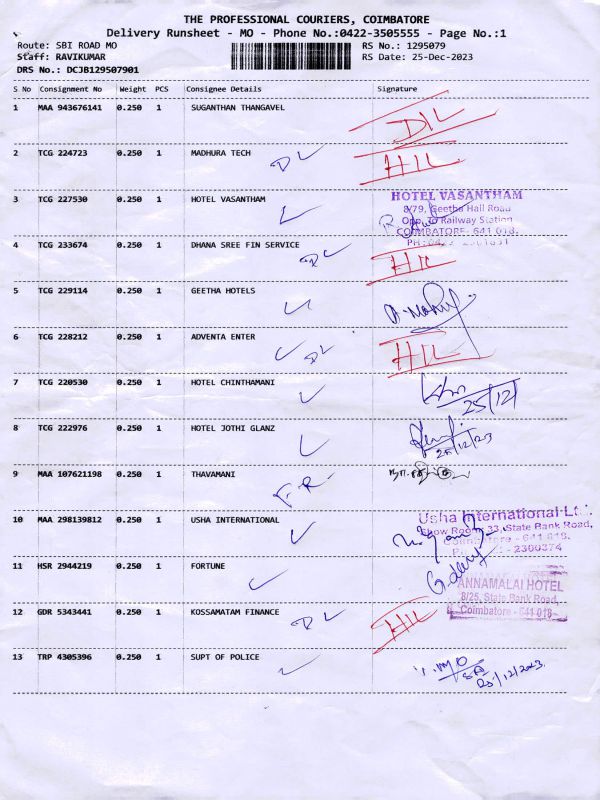 THE PROFESSIONAL COURIERS, COIMBATORE
Delivery Runsheet - MO - Phone No.:0422-3505555 - Page No.:1
Route: SBI ROAD MO RS No.: 1295079
Staff: RAVIKUMAR RS Date: 25-Dec-2023
DRS No.: DCJB129507901
S No Consignment No Weight PCS Consignee Details Signature
1 MAA 943676141 0.250 1 SUGANTHAN THANGAVEL
D/L
2 TCG 224723 0.250 1 MADHURA TECH DL H/L
3 TCG 227530 0.250 1 HOTEL VASANTHAM HOTEL VASANTHAM
8/79, Geetha Hall Road
Opp. to Railway Station
COIMBATORE- 641 018.
4 TCG 233674 0.250 1 DHANA SREE FIN SERVICE DL H/L
5 TCG 229114 0.250 1 GEETHA HOTELS
6 TCG 228212 0.250 1 ADVENTA ENTER DL H/L
7 TCG 220530 0.250 1 HOTEL CHINTHAMANI
25/12/
8 TCG 222976 0.250 1 HOTEL JOTHI GLANZ
25/12/23
9 MAA 107621198 0.250 1 THAVAMANI F.R-
10 MAA 298139812 0.250 1 USHA INTERNATIONAL Usha International Lt
Show Room 33, State Bank Road,
Coimbatore - 641 018.
- 2300374
11 HSR 2944219 0.250 1 FORTUNE
ANNAMALAI HOTEL
8/25, State Bank Road,
Coimbatore - 641 018
12 GDR 5343441 0.250 1 KOSSAMATAM FINANCE DL H/L
13 TRP 4305396 0.250 1 SUPT OF POLICE
25/12/2023